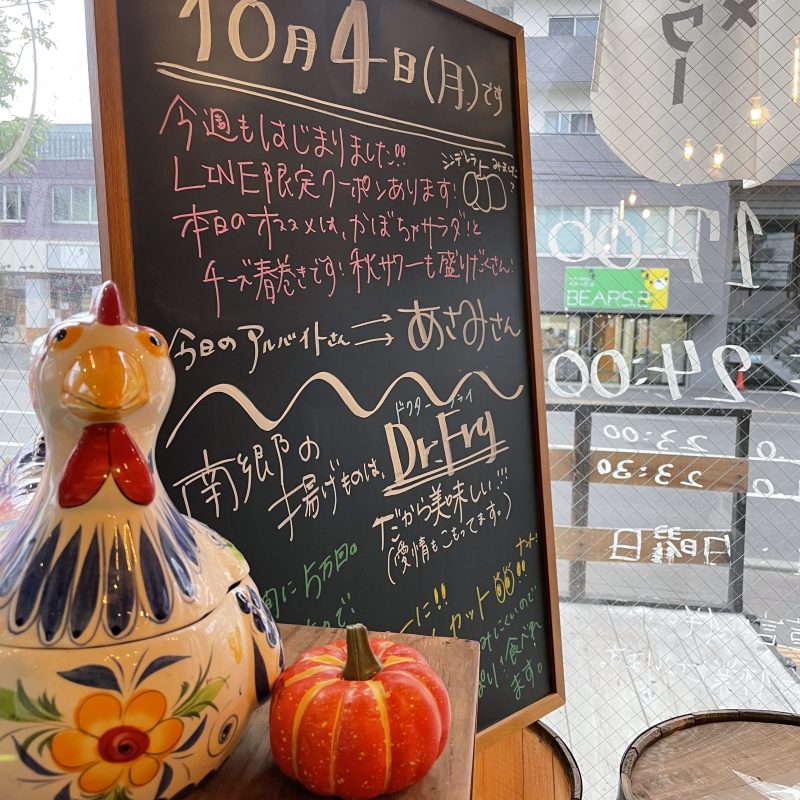 10月4日(月)です
今週もはじまりました!!
LINE限定クーポンあります!
シンデレラ
みました?
本日のオススメは、かぼちゃサラダ!と
チーズ春巻きです!秋サワーも盛りだくさん!
今日のアルバイトさん⇒あさみさん
ドクター フライ
南郷の
揚げものは、Dr.Fry
だから美味しい!!!
(愛情もこもってます。)
に5万回の
ーに!!
カット
ナント!
みにくいので
食べれ
ます。
ワー
BEARS.2
17:00
24:00
23:00
23:30
日曜日